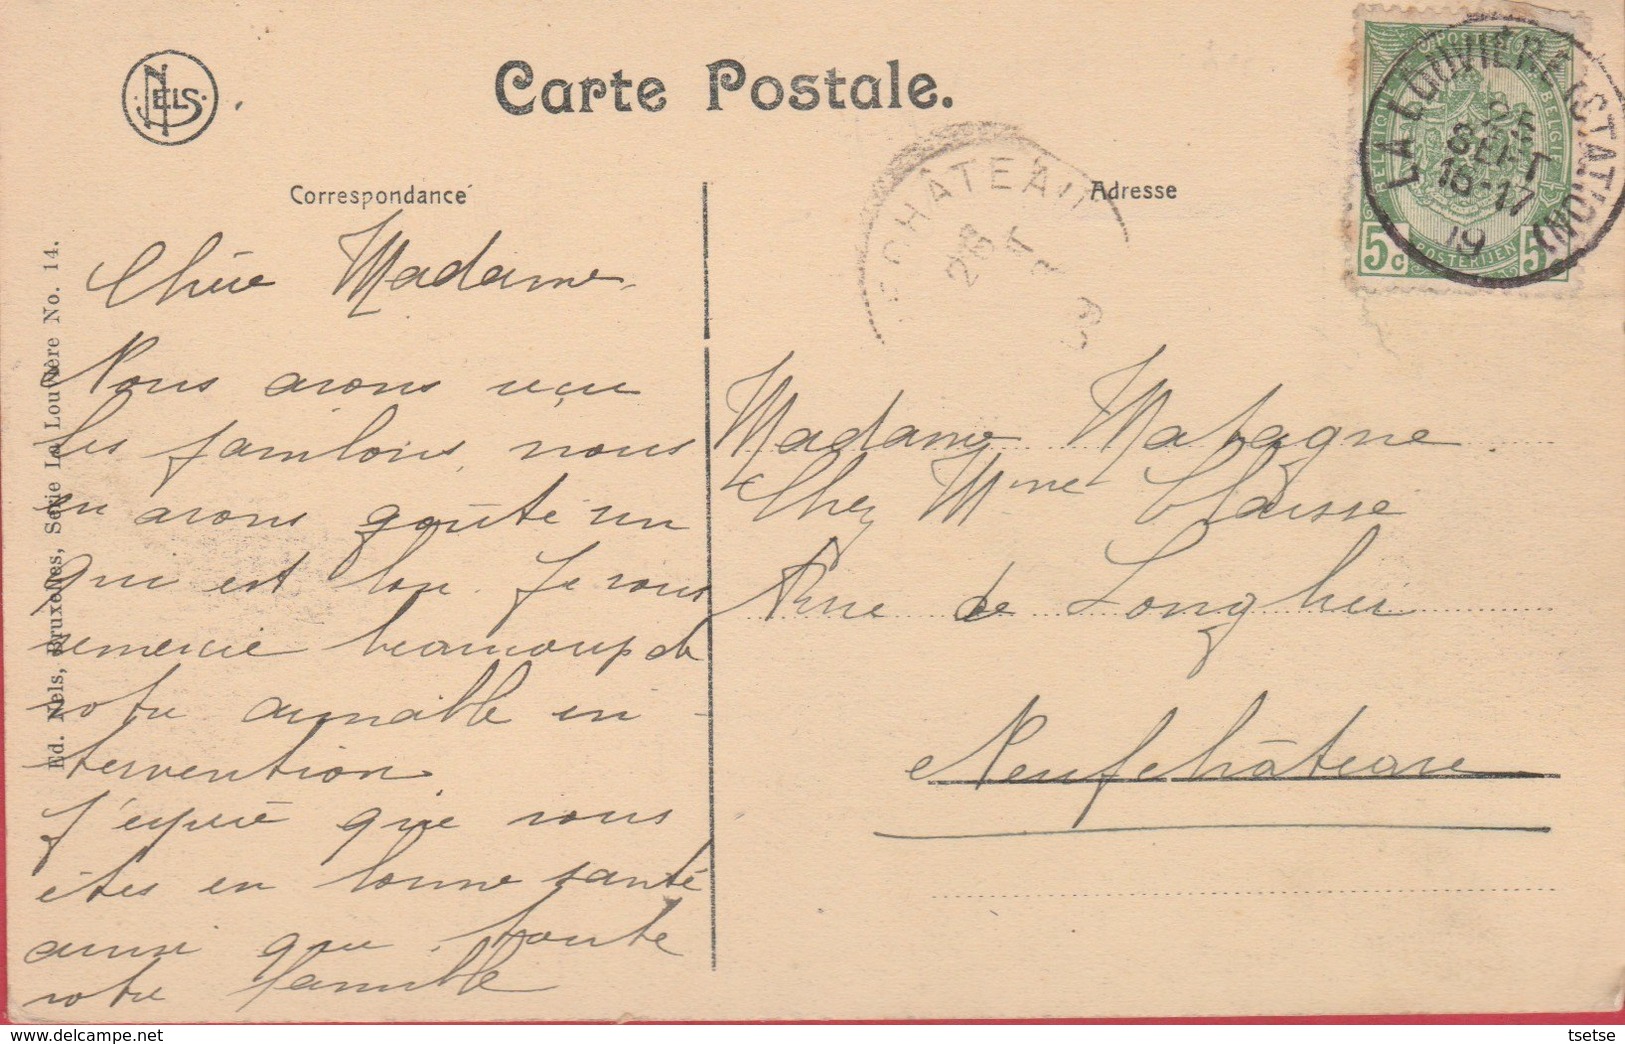 NELS.
Carte Postale.
Correspondance
Adresse
LA LOUVIÈRE (STATION)
25
SEPT
16-17
19
POSTES
BELGIQUE
BELGIË
5c
POSTERIJEN
5
CHÂTEAU
26
Ed. Nels, Bruxelles, Serie La Louvière No. 14.
Chère Madame
Nous avons reçu
les jambons, nous
en avons goûté un
qui est bon. Je vous
remercie beaucoup de
votre aimable in-
tervention
J'espère que vous
êtes en bonne santé
ainsi que toute
votre famille
Madame Matagne
Chez Mme Claisse
Rue de Longlier
Neufchâteau
tsetse